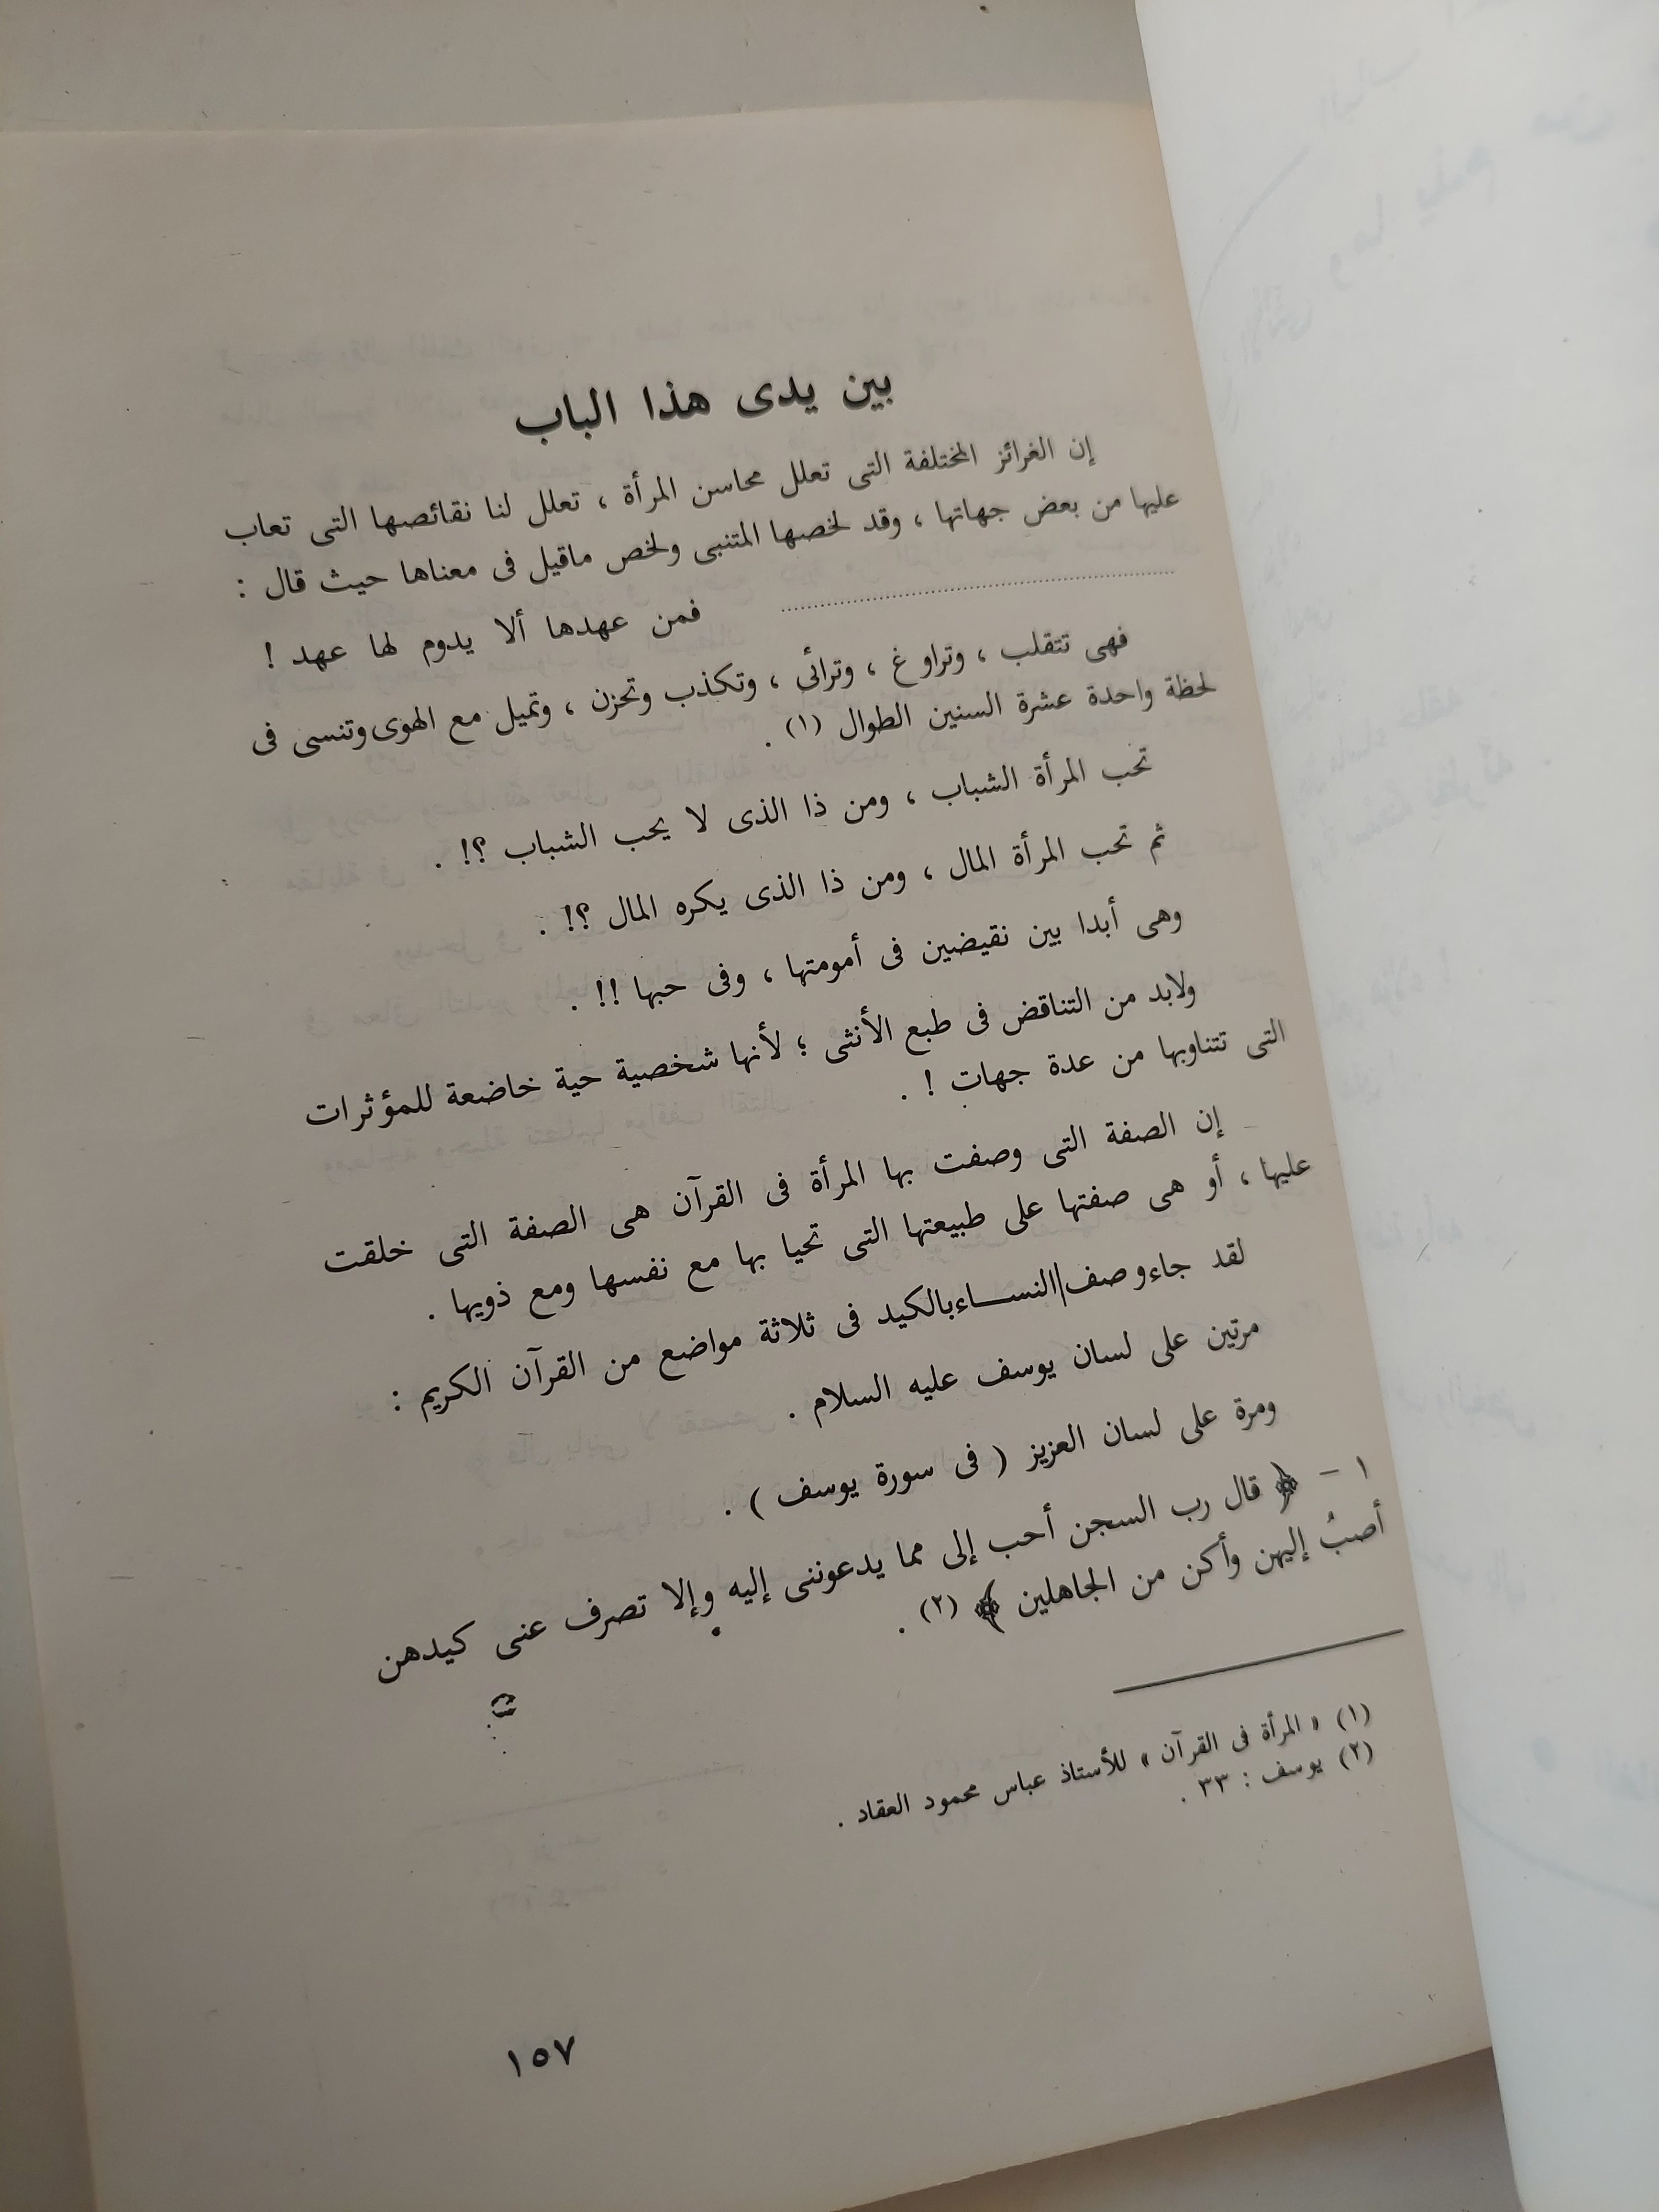 بين يدى هذا الباب
إن الغرائز المختلفة التى تعلل محاسن المرأة ، تعلل لنا نقائصها التى تعاب
عليها من بعض جهاتها ، وقد لخصها المتنبى ولخص ماقيل فى معناها حيث قال :
.................................................. فمن عهدها ألا يدوم لها عهد !
فهى تتقلب ، وتراوغ ، وترائى ، وتكذب وتحزن ، وتميل مع الهوى وتنسى فى
لحظة واحدة عشرة السنين الطوال (١) .
تحب المرأة الشباب ، ومن ذا الذى لا يحب الشباب ؟! .
ثم تحب المرأة المال ، ومن ذا الذى يكره المال ؟! .
وهى أبدا بين نقيضين فى أمومتها ، وفى حبها !! .
ولابد من التناقض فى طبع الأنثى ؛ لأنها شخصية حية خاضعة للمؤثرات
التى تتناوبها من عدة جهات ! .
إن الصفة التى وصفت بها المرأة فى القرآن هى الصفة التى خلقت
عليها ، أو هى صفتها على طبيعتها التى تحيا بها مع نفسها ومع ذويها .
لقد جاء وصف النساء بالكيد فى ثلاثة مواضع من القرآن الكريم :
مرتين على لسان يوسف عليه السلام .
ومرة على لسان العزيز ( فى سورة يوسف ) .
١ – ﴿ قال رب السجن أحب إلى مما يدعوننى إليه وإلا تصرف عنى كيدهن
أصبُ إليهن وأكن من الجاهلين ﴾ (٢) .
(١) « المرأة فى القرآن » للأستاذ عباس محمود العقاد .
(٢) يوسف : ٣٣ .
١٥٧